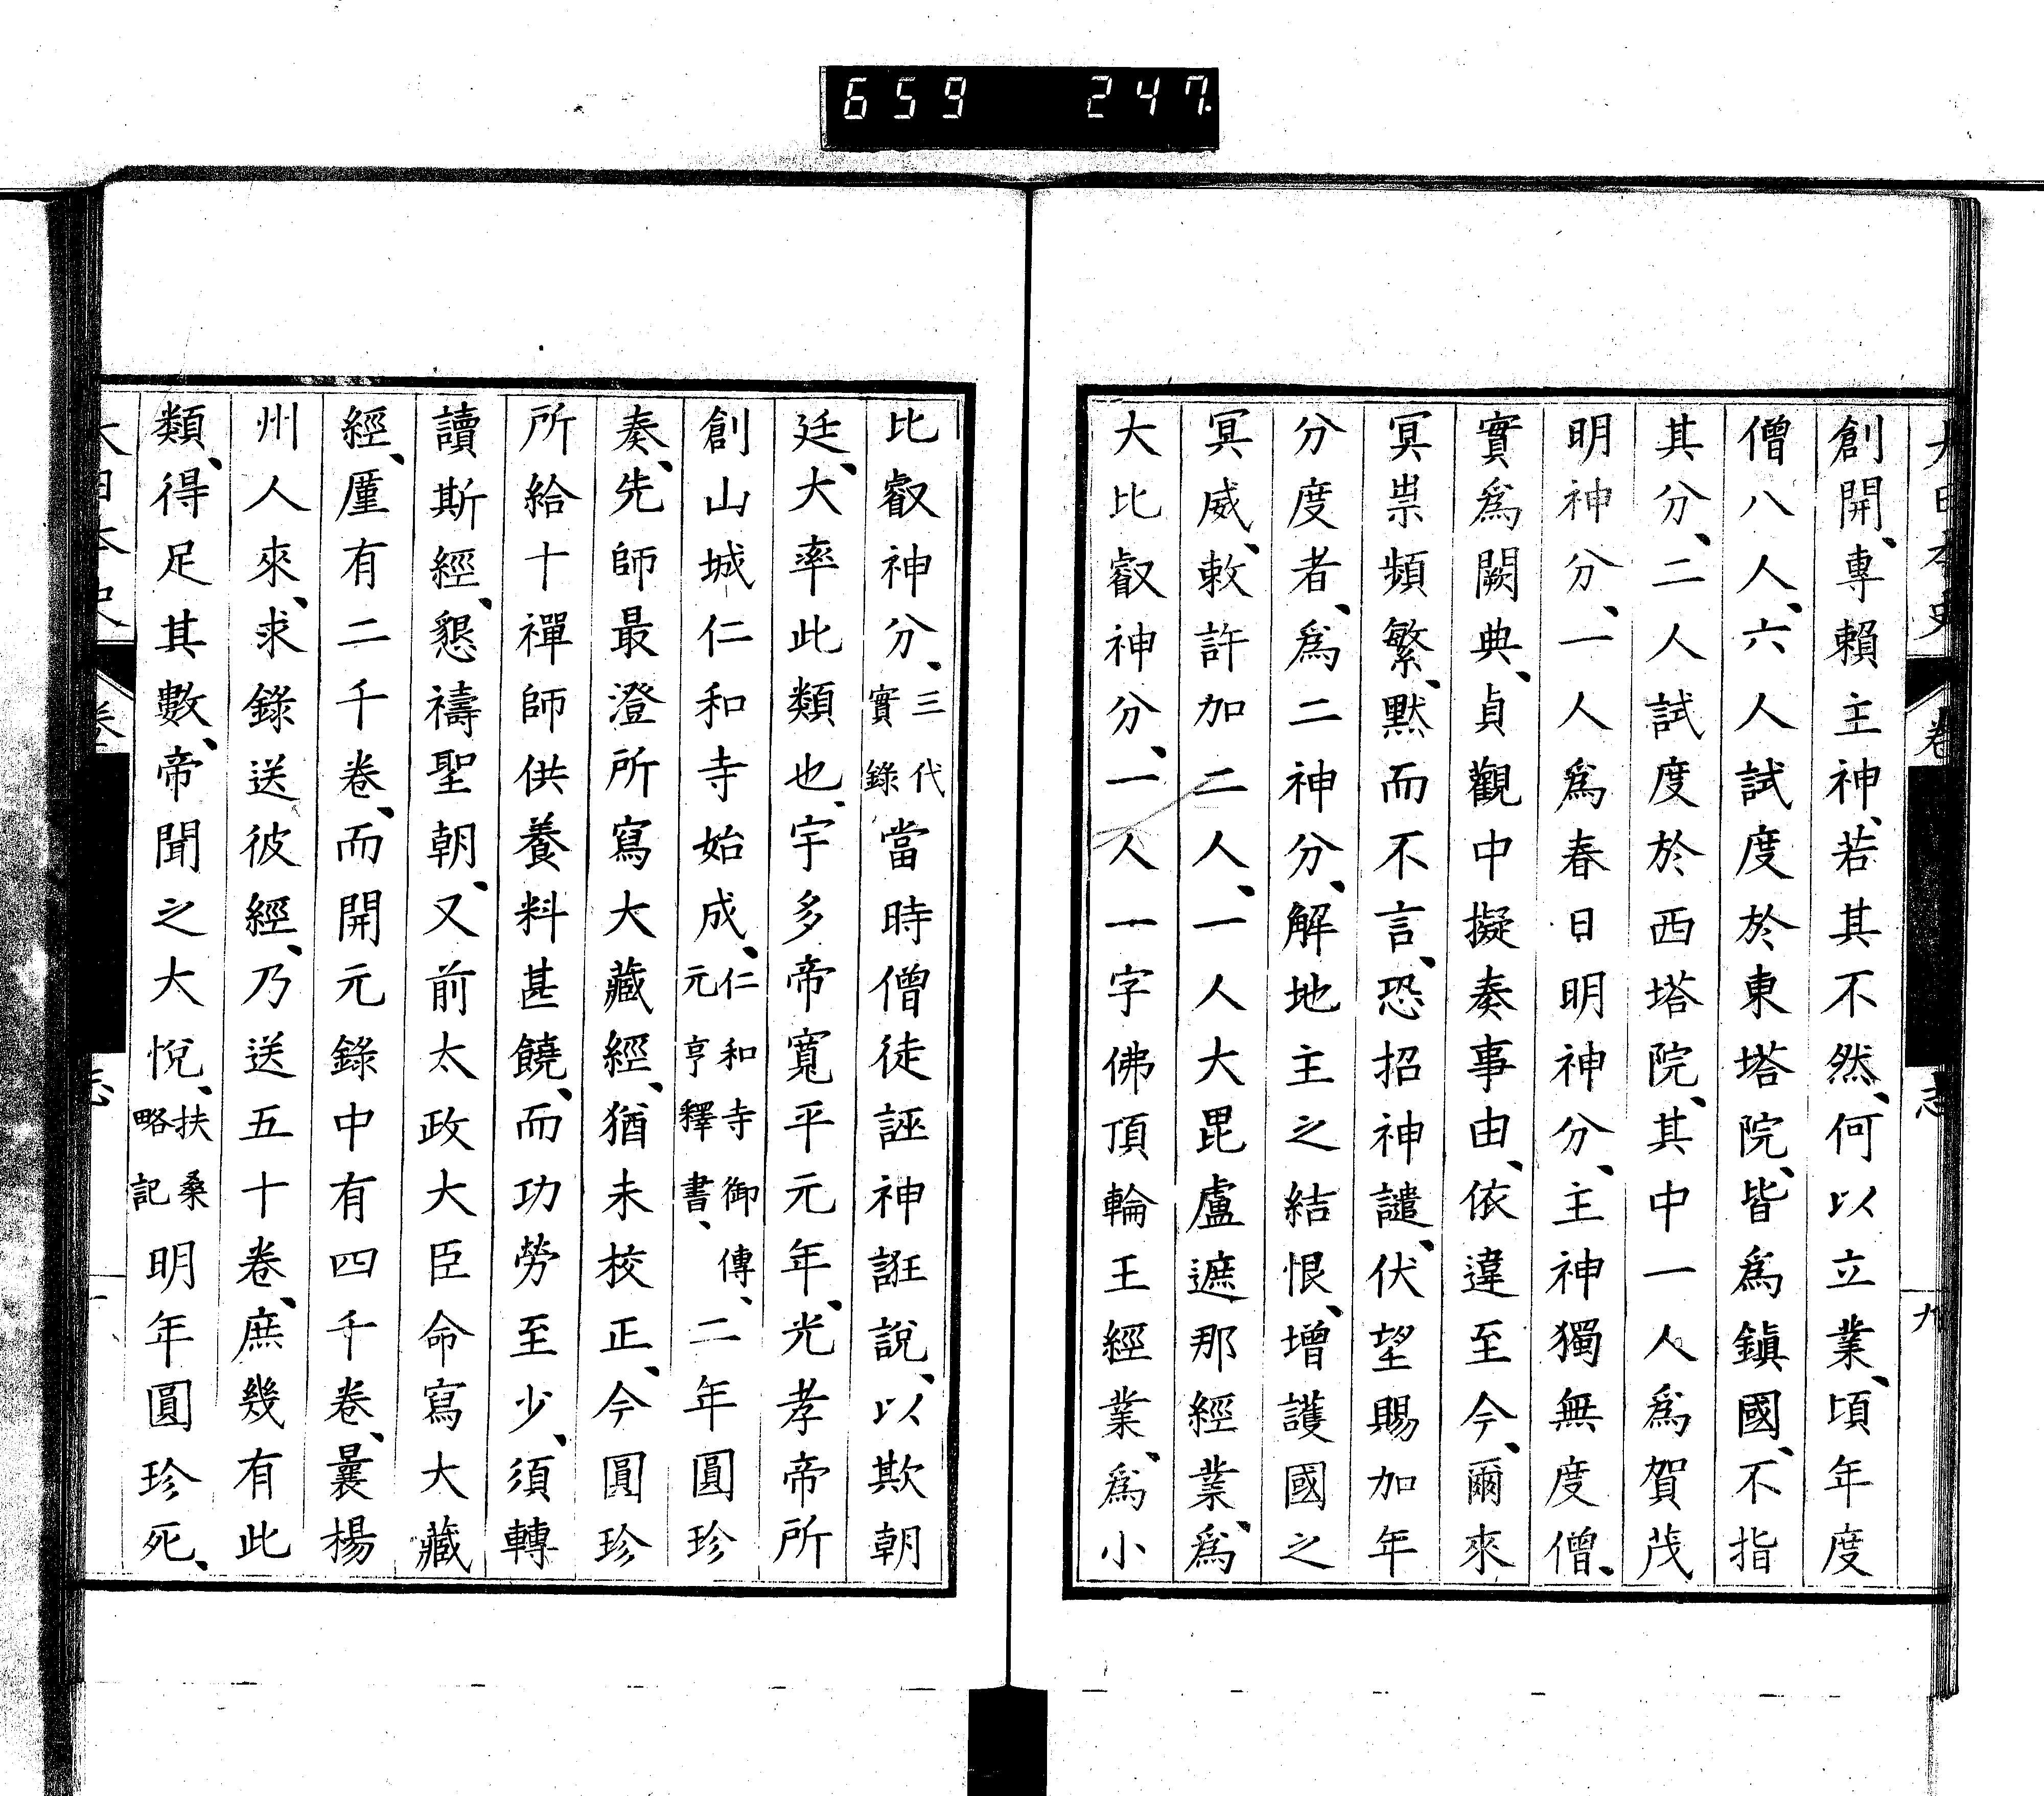 659 247.
大日本史 卷 志 九
創開、專賴主神、若其不然、何以立業、頃年度
僧八人、六人試度於東塔院、皆爲鎭國、不指
其分、二人試度於西塔院、其中一人爲賀茂
明神分、一人爲春日明神分、主神獨無度僧、
實爲闕典、貞觀中擬奏事由、依違至今、爾來
冥祟頻繁、默而不言、恐招神譴、伏望賜加年
分度者、爲二神分、解地主之結恨、增護國之
冥威、敕許加二人、一人大毘盧遮那經業、爲
大比叡神分、一人一字佛頂輪王經業、爲小
比叡神分、三代實錄當時僧徒誣神誑說、以欺朝
廷、大率此類也、宇多帝寬平元年、光孝帝所
創山城仁和寺始成、仁和寺御傳、元亨釋書、二年圓珍
奏、先師最澄所寫大藏經、猶未校正、今圓珍
所給十禪師供養料甚饒、而功勞至少、須轉
讀斯經、懇禱聖朝、又前太政大臣命寫大藏
經、廑有二千卷、而開元錄中有四千卷、曩楊
州人來、求錄送彼經、乃送五十卷、庶幾有此
類、得足其數、帝聞之大悅、扶桑略記明年圓珍死、
大日本史 卷 志